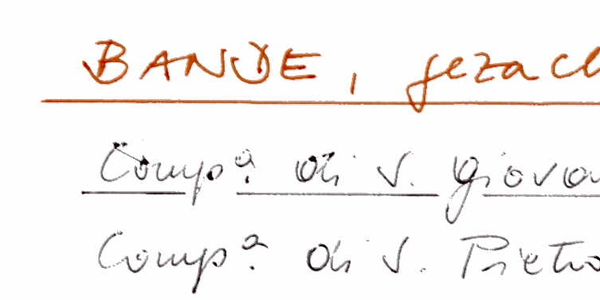 BANDE, gezach
Comp.ª di S. Giova
Comp.ª di S. Pietro